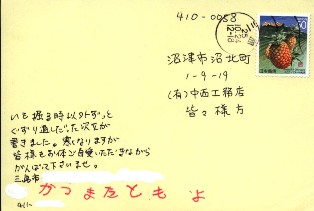 410-0058
沼津市沼北町
1-9-19
(有)中西工務店
皆々様方
いも掘る時以外ずっと
ぐずり通しだった次女が
書きました。寒くなりますが
皆様もお体ご自愛いただきながら
がんばって下さいませ。
三島市
かつまたともよ